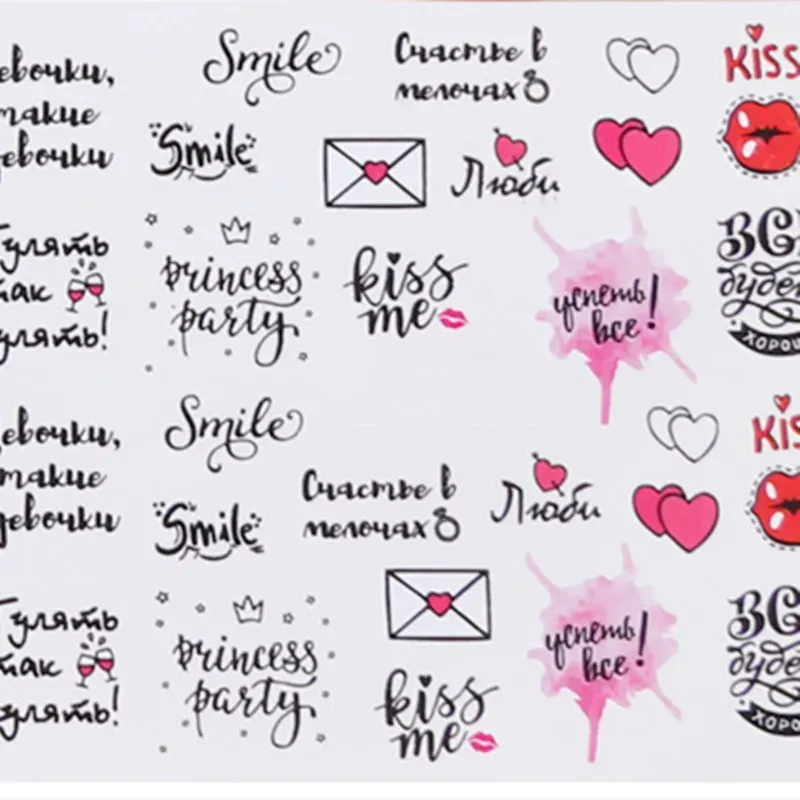 Smile
Счастье в
мелочах
KISS
евочки,
такие
евочки
Smile
Люби
улять
так
улять!
princess
party
kiss
me
успеть
все!
ВСЁ
буде
ХОРОШ
евочки,
такие
девочки
Smile
KIS
Smile
Счастье в
мелочах
Люби
Гулять
так
улять!
princess
party
kiss
me
успеть
все!
буде
ХОРО